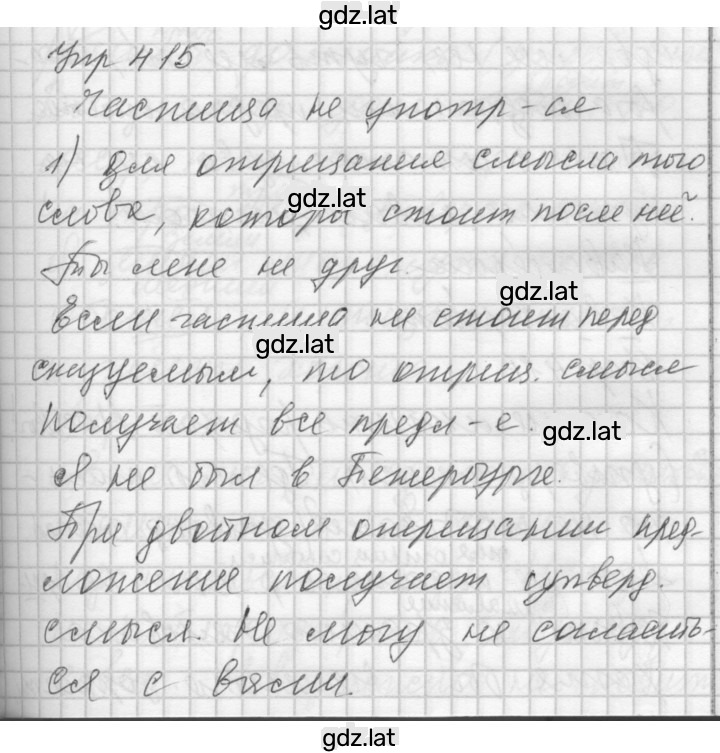 gdz.lat
Упр 415
Частица не употр-ся
1) для отрицания смысла того
слова, которы стоит после ней.
gdz.lat
Ты мне не друг.
gdz.lat
Если частица не стоит перед
gdz.lat
сказуемым, то отриц. смысл
получает все предл-е.
gdz.lat
Я не был в Петербурге.
При двойном отрицании пред-
ложение получает утверд.
смысл. Не могу не согласить-
ся с вами.
gdz.lat